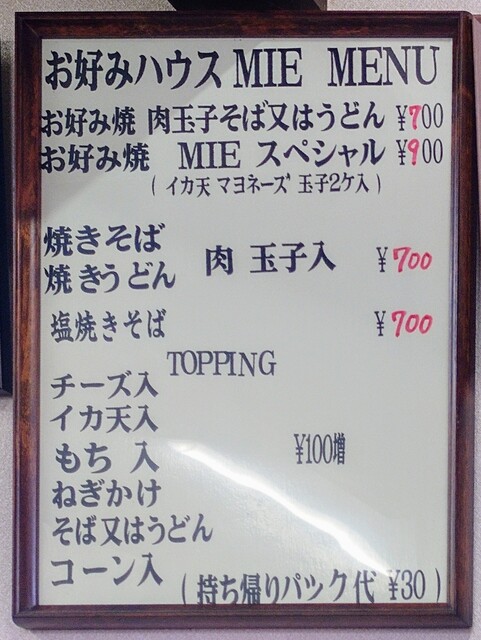 お好みハウス MIE MENU
お好み焼 肉玉子そば又はうどん ¥700
お好み焼 MIE スペシャル ¥900
( イカ天 マヨネーズ 玉子2ケ入 )
焼きそば
焼きうどん 肉 玉子入 ¥700
塩焼きそば ¥700
TOPPING
チーズ入
イカ天入
もち 入 ¥100増
ねぎかけ
そば又はうどん
コーン入
( 持ち帰りパック代 ¥30 )